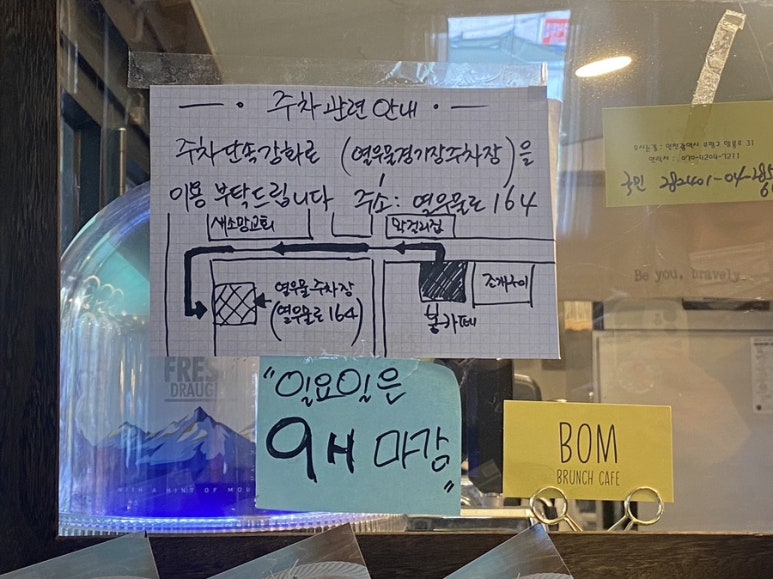 주차관련 안내
주차단속강화로 (열우물경기장주차장)을
이용 부탁드립니다 주소: 열우물로 164
새소망교회
막걸리집
열우물주차장
(열우물로 164)
봄카페
조개구이
"일요일은
9시 마감"
BOM
BRUNCH CAFE
국민 282401-04-285
Be you, bravely.
FRESH
DRAUG
WITH A HINT OF MOU